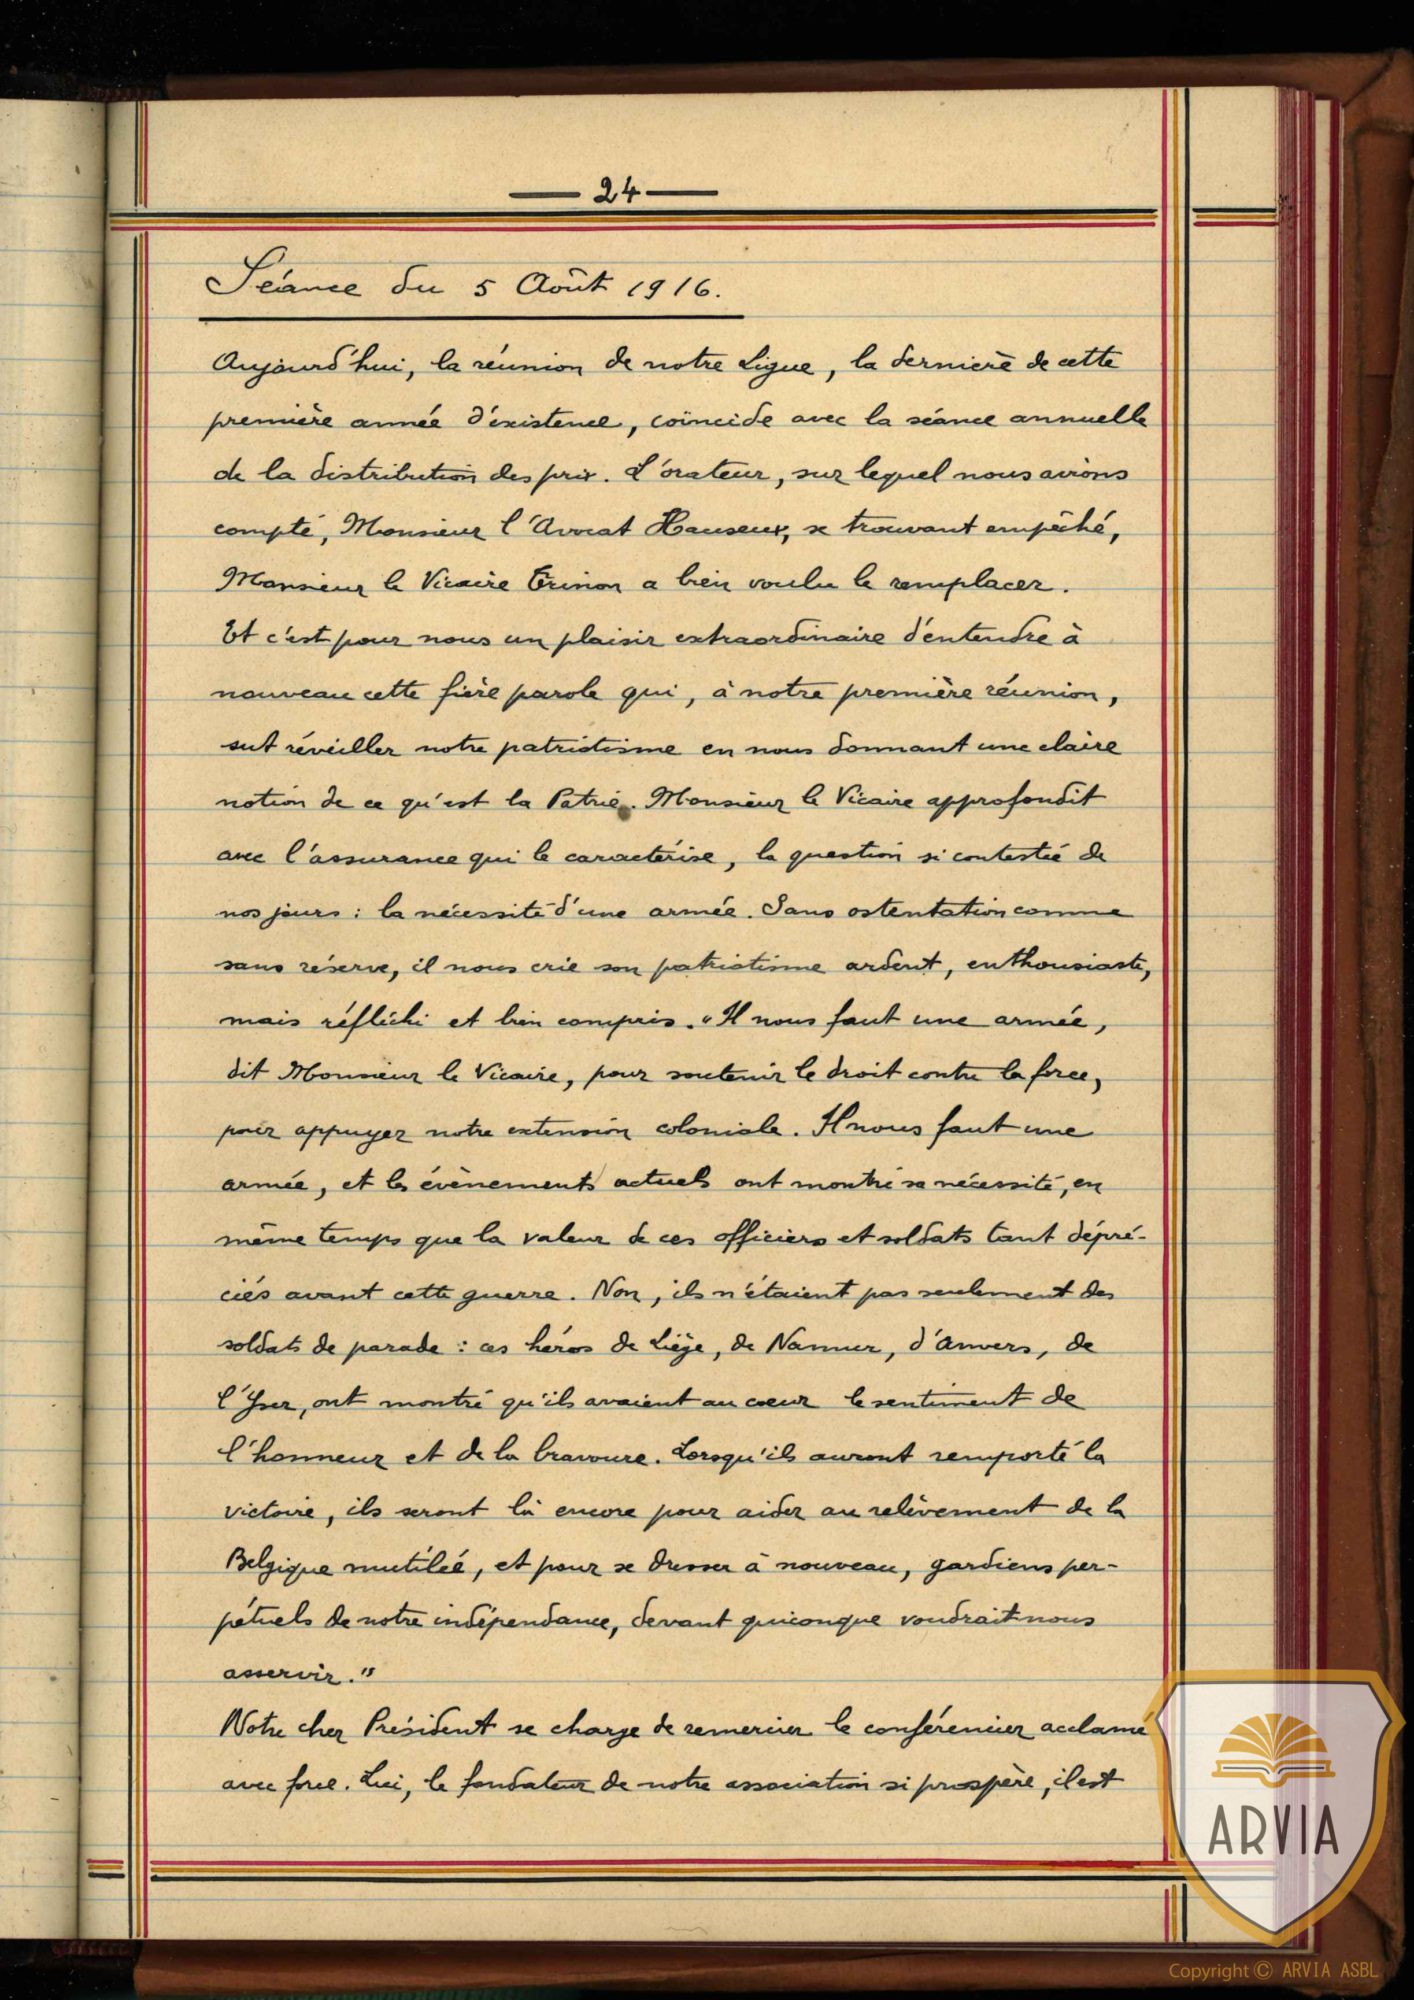 — 24 —
Séance du 5 Août 1916.
Aujourd'hui, la réunion de notre Ligue, la dernière de cette
première année d'existence, coïncide avec la séance annuelle
de la distribution des prix. L'orateur, sur lequel nous avions
compté, Monsieur l'Avocat Hauseux, se trouvant empêché,
Monsieur le Vicaire Trinon a bien voulu le remplacer.
Et c'est pour nous un plaisir extraordinaire d'entendre à
nouveau cette fière parole qui, à notre première réunion,
sut réveiller notre patriotisme en nous donnant une claire
notion de ce qu'est la Patrie. Monsieur le Vicaire approfondit
avec l'assurance qui le caractérise, la question si contestée de
nos jours : la nécessité d'une armée. Sans ostentation comme
sans réserve, il nous crie son patriotisme ardent, enthousiaste,
mais réfléchi et bien compris. "Il nous faut une armée,
dit Monsieur le Vicaire, pour soutenir le droit contre la force,
pour appuyer notre extension coloniale. Il nous faut une
armée, et les évènements actuels ont montré sa nécessité, en
même temps que la valeur de ces officiers et soldats tant dépré-
ciés avant cette guerre. Non, ils n'étaient pas seulement des
soldats de parade : ces héros de Liège, de Namur, d'Anvers, de
l'Yser, ont montré qu'ils avaient au cœur le sentiment de
l'honneur et de la bravoure. Lorsqu'ils auront remporté la
victoire, ils seront là encore pour aider au relèvement de la
Belgique mutilée, et pour se dresser à nouveau, gardiens per-
pétuels de notre indépendance, devant quiconque voudrait nous
asservir."
Notre cher Président se charge de remercier le conférencier acclamé
avec force. Lui, le fondateur de notre association si prospère, il est
ARVIA
Copyright © ARVIA ASBL